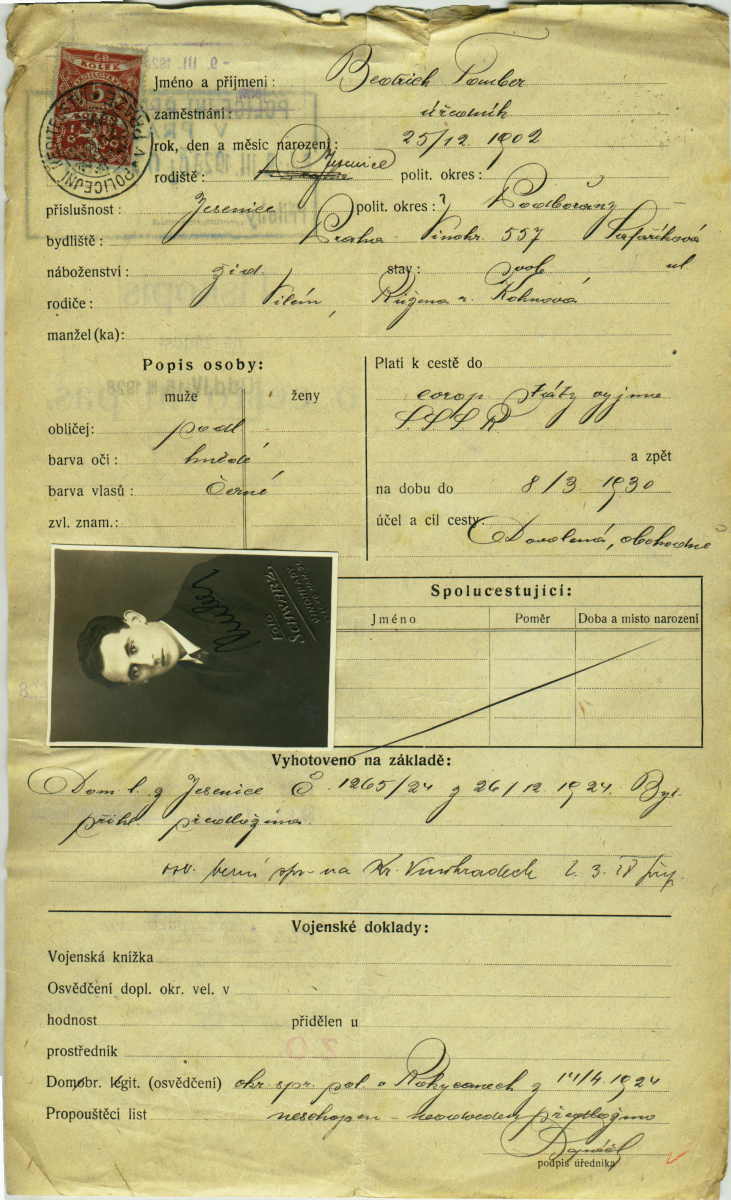 Jméno a příjmení: Bedřich
zaměstnání: úředník
rok, den a měsíc narození: 25/12 1902
rodiště: Jesenice polit. okres:
příslušnost: Jesenice polit. okres: Podbořany
bydliště: Praha Vinohr. 557 Šafaříková
náboženství: žid. stav: svob. ul
rodiče: Vilém, Růžena r. Kohnová
manžel (ka):
Popis osoby:
muže ženy
obličej: podl
barva očí: hnědé
barva vlasů: černé
zvl. znam.:
Platí k cestě do
evrop státy vyjma
S.S.S.R
a zpět
na dobu do 8/3 1930
účel a cíl cesty: Dovolená, obchodně
FOTO
SCHWARZ
VINOHRADY
Spolucestující:
Jméno Poměr Doba a místo narození
Vyhotoveno na základě:
Dom l. z Jesenice Č. 1265/24 z 26/12 1924. Byl.
přihl. předložena
osv. berní spr. na Kr. Vinohradech
Vojenské doklady:
Vojenská knížka
Osvědčení dopl. okr. vel. v
hodnost přidělen u
prostředník
Domobr. legit. (osvědčení) okr. spr. pol. v Rokycanech z 14/4 1924
Propouštěcí list neschopen
podpis úředníka